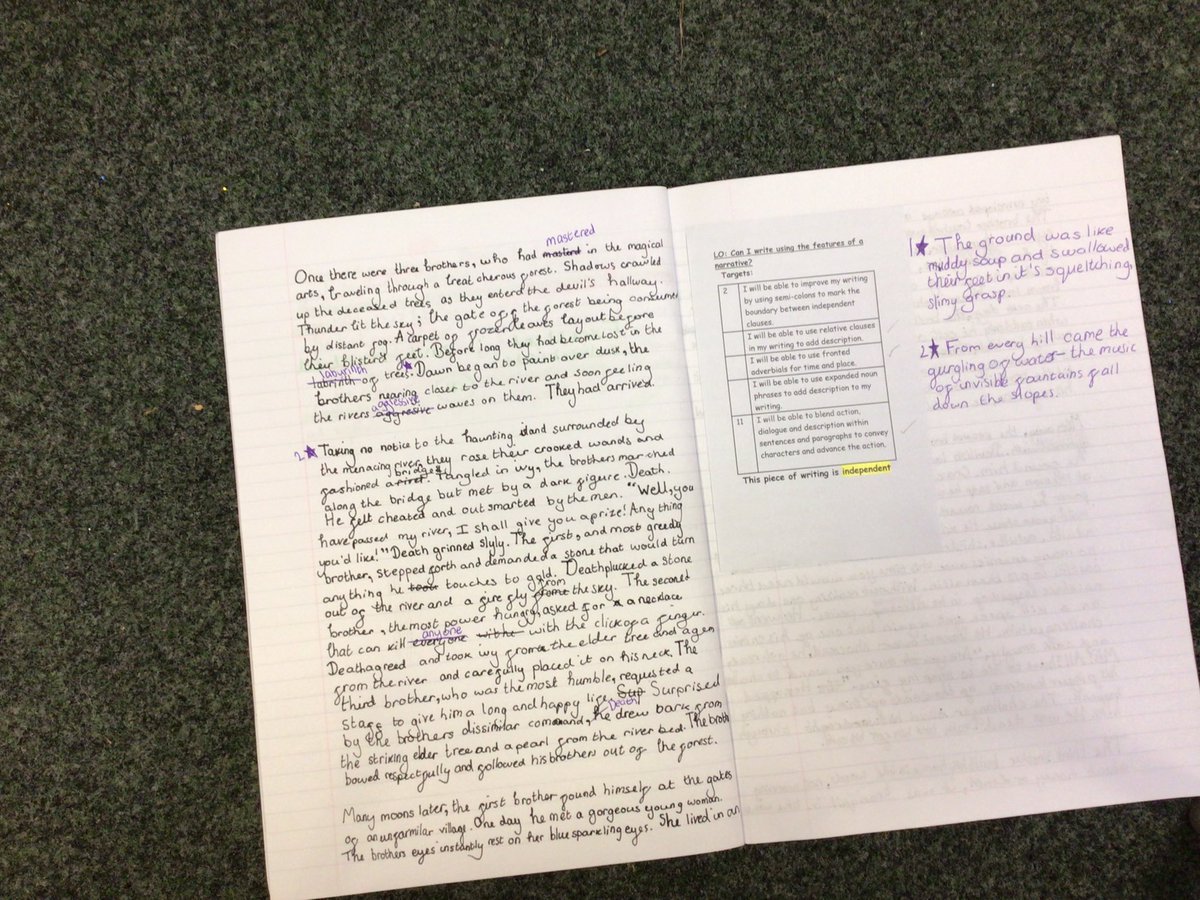 mastered
One there were three brothers, who had masterd in the magical
arts, traveling through a treat cherous forest. Shadows crawled
up the deceased trees as they enterd the devil's hallway.
Thunder lit the sky; the gate off the forest being consumed
by distant fog. A carpet of frozen leaves layout before
their blisterd feet. Before long they had become lost in the
labyrinth
labrinth of trees. Dawn began to paint over dusk, the
brothers nearing closer to the river and soon feeling
aggressive
the rivers aggresive waves on them. They had arrived.
2 Taking no notice to the haunting island surrounded by
the menacing river, they rose their crooked wands and
bridge
fashioned a river. Tangled in ivy, the brothers marched
along the bridge but met by a dark figure. Death.
He felt cheated and outsmarted by the men. "Well, you
have passed my river, I shall give you a prize! Any thing
you'd like!" Death grinned slyly. The first, and most greedy
brother, stepped forth and demanded a stone that would turn
anything he took touches to gold. Death plucked a stone
from
out of the river and a fire fly frome the sky. The second
brother, the most power hungry, asked for a necklace
anyone
that can kill everyone with the click of a finger.
Death agreed and took ivy from the elder tree and a gem
from the river and carefully placed it on his neck. The
third brother, who was the most humble, requested a
staff to give him a long and happy life. Sup Surprised
Death
by the brothers dissimilar command, he drew bark from
the striking elder tree and a pearl from the river bed. The broth
bowed respectfully and followed his brothers out of the forest.
Many moons later, the first brother found himself at the gates
of an unfarmilar village. One day he met a gorgeous young woman.
The brothers eyes instantly rest on her blue sparkling eyes. She lived in an
LO: Can I write using the features of a
narrative?
Targets:
2 I will be able to improve my writing
by using semi-colons to mark the
boundary between independent
clauses.
I will be able to use relative clauses
in my writing to add description.
I will be able to use fronted
adverbials for time and place.
I will be able to use expanded noun
phrases to add description to my
writing.
11 I will be able to blend action,
dialogue and description within
sentences and paragraphs to convey
characters and advance the action.
This piece of writing is independent
1 The ground was like
muddy soup and swallowed
their feet in it's squeltching,
slimy grasp.
2 From every hill came the
gurgling of water - the music
of invisible fountains fall
down the slopes.